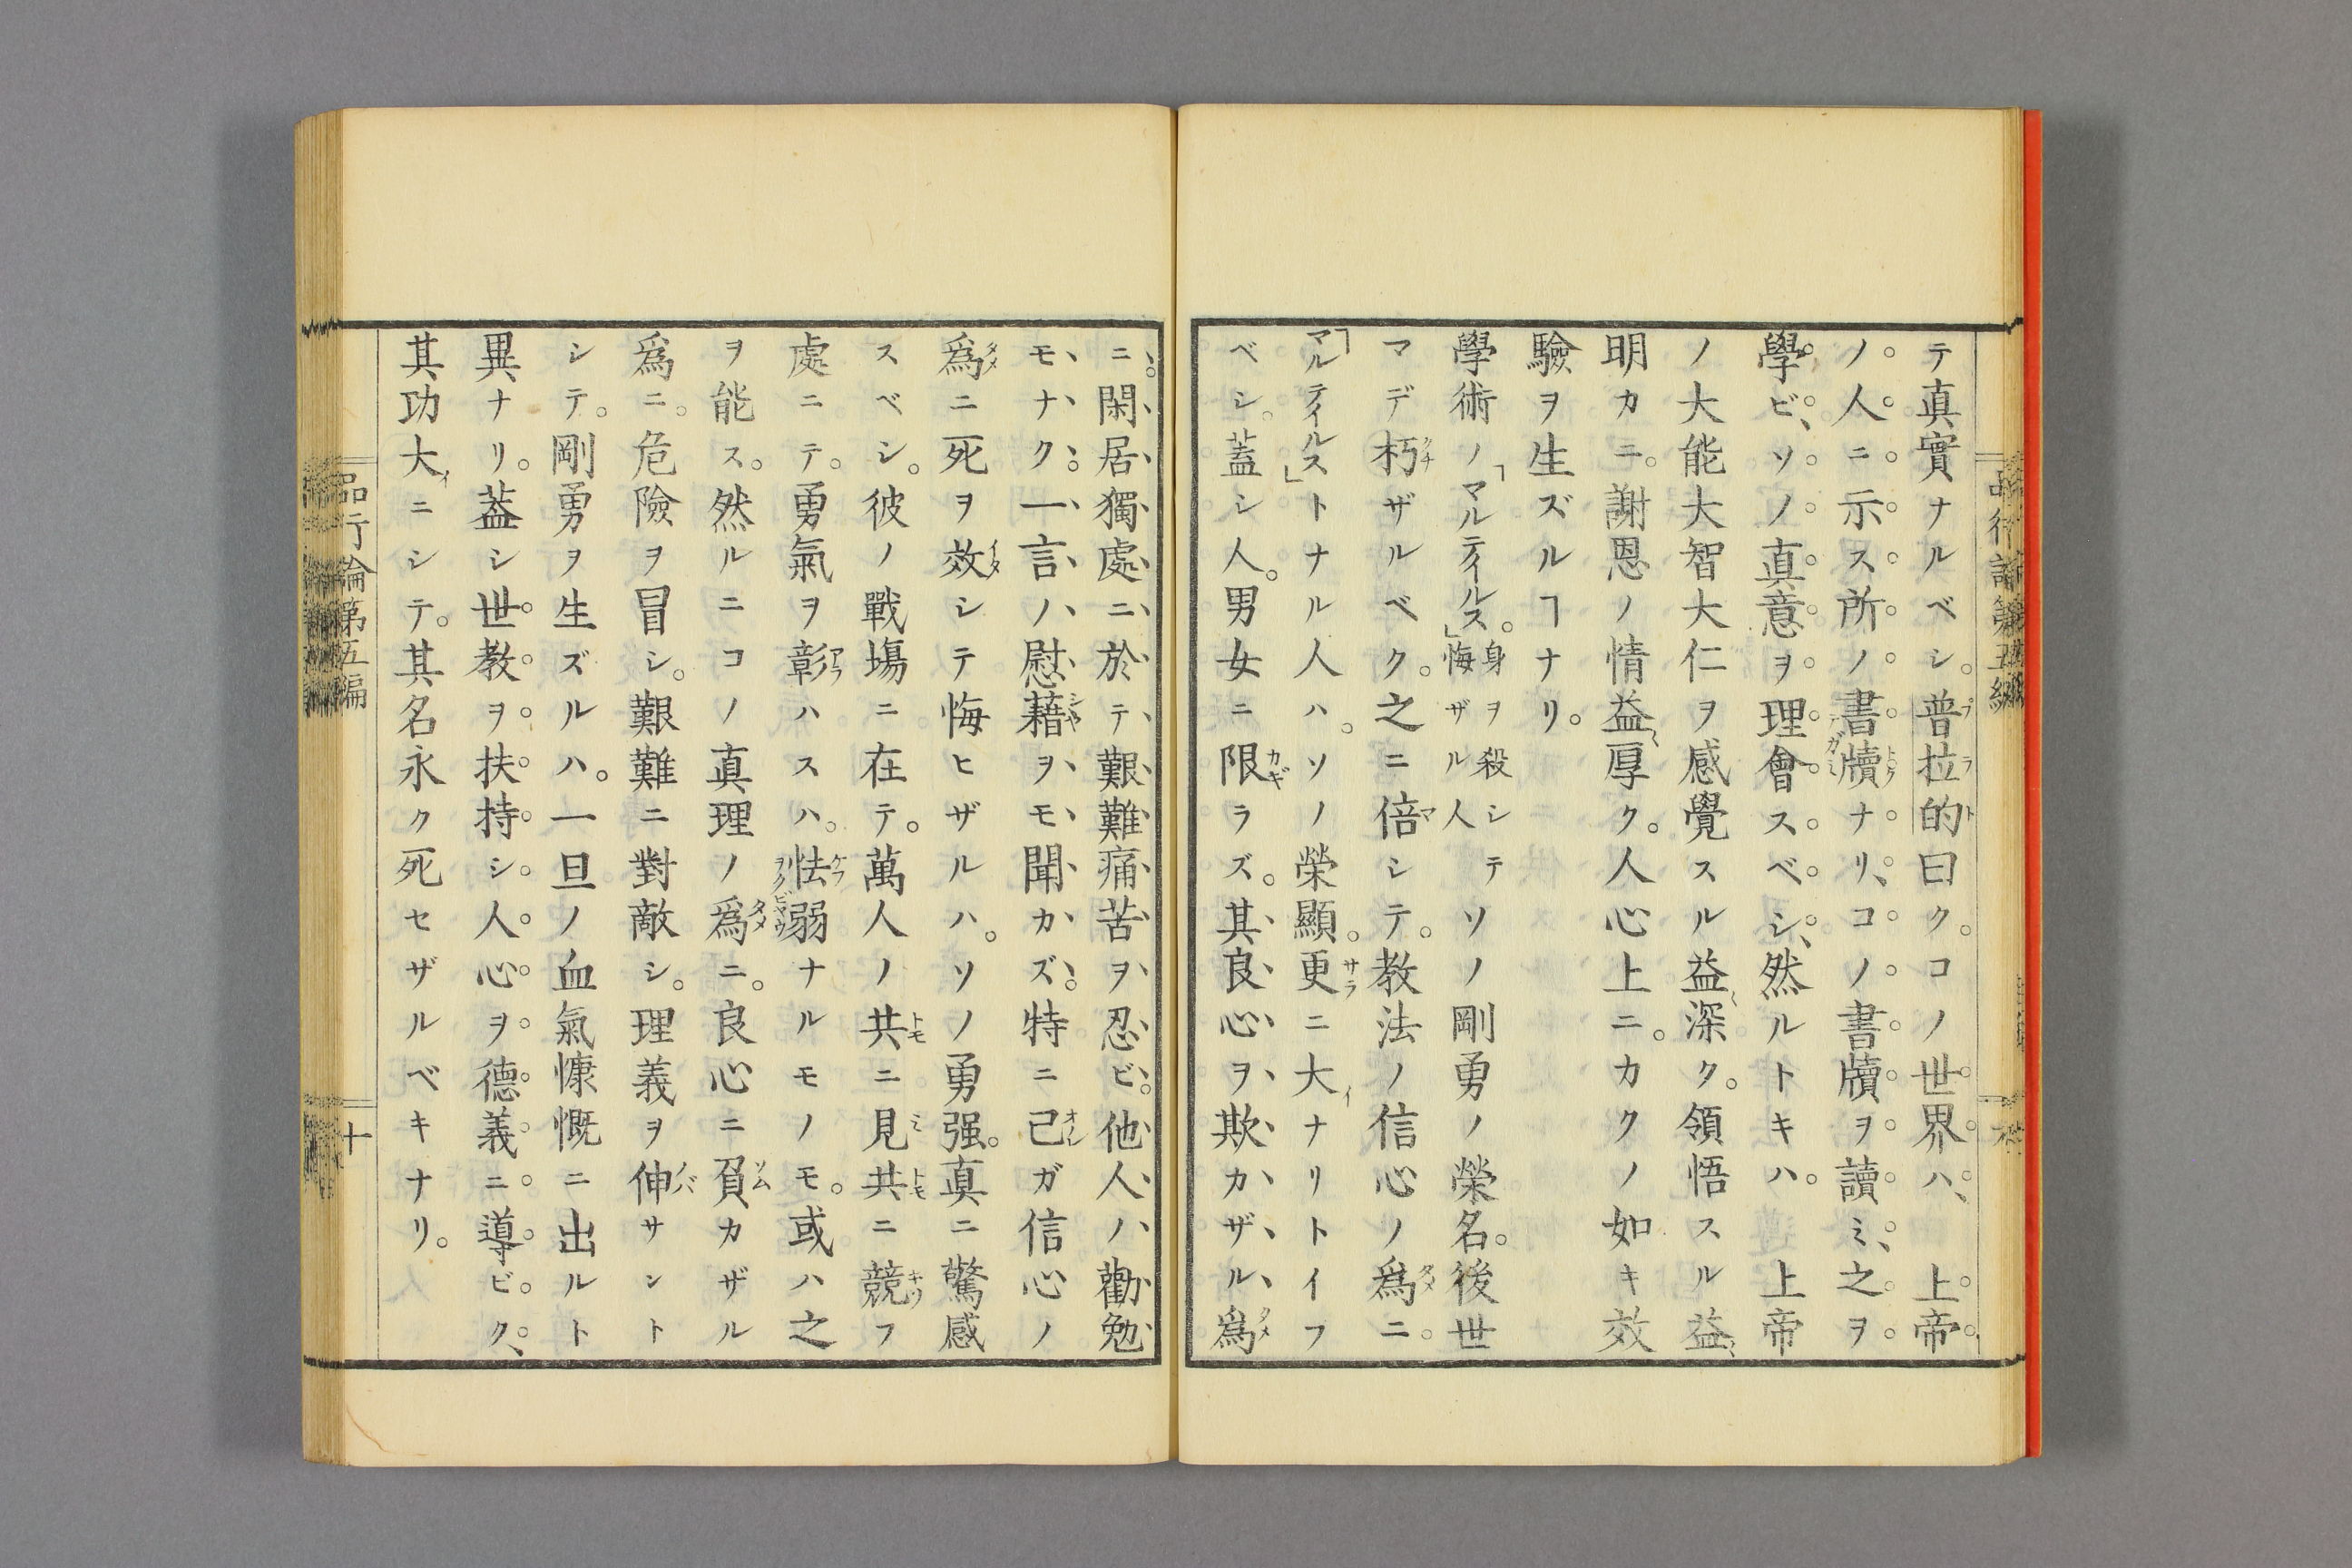 テ真實ナルベシ。普拉的曰ク。コノ世界ハ、上帝
ノ人ニ示ス所ノ書牘ナリ、コノ書牘ヲ讀ミ、之ヲ
學ビ、ソノ真意ヲ理會スベシ、然ルトキハ。上帝
ノ大能大智大仁ヲ感覺スル益深ク。領悟スル益
明カニ。謝恩ノ情益厚ク。人心上ニ。カクノ如キ效
驗ヲ生ズルヿナリ。
學術ノ「マルテイルス。」身ヲ殺シテ悔ザル人ソノ剛勇ノ榮名。後世
マデ朽ザルベク。之ニ倍シテ。教法ノ信心ノ爲ニ。
「マルテイルス」トナル人ハ。ソノ榮顯。更ニ大ナリトイフ
ベシ。蓋シ人。男女ニ限ラズ。其良心ヲ欺カザル爲
ニ。閑居獨處ニ於テ艱難痛苦ヲ忍ビ。他人ノ勸勉
モナク。一言ノ慰藉ヲモ聞カズ。特ニ己ガ信心ノ
爲ニ死ヲ效シテ悔ヒザルハ。ソノ勇强。真ニ驚感
スベシ。彼ノ戰塲ニ在テ。萬人ノ共ニ見共ニ競フ
處ニテ。勇氣ヲ彰ハスハ。怯弱ナルモノモ。或ハ之
ヲ能ス。然ルニコノ真理ノ爲ニ。良心ニ負カザル
爲ニ。危險ヲ冒シ。艱難ニ對敵シ。理義ヲ伸サント
シテ。剛勇ヲ生ズルハ。一旦ノ血氣慷慨ニ出ルト
異ナリ。蓋シ世教ヲ扶持シ人心ヲ德義ニ導ビク、
其功大ニシテ。其名永ク死セザルベキナリ。
品行論第五編
十